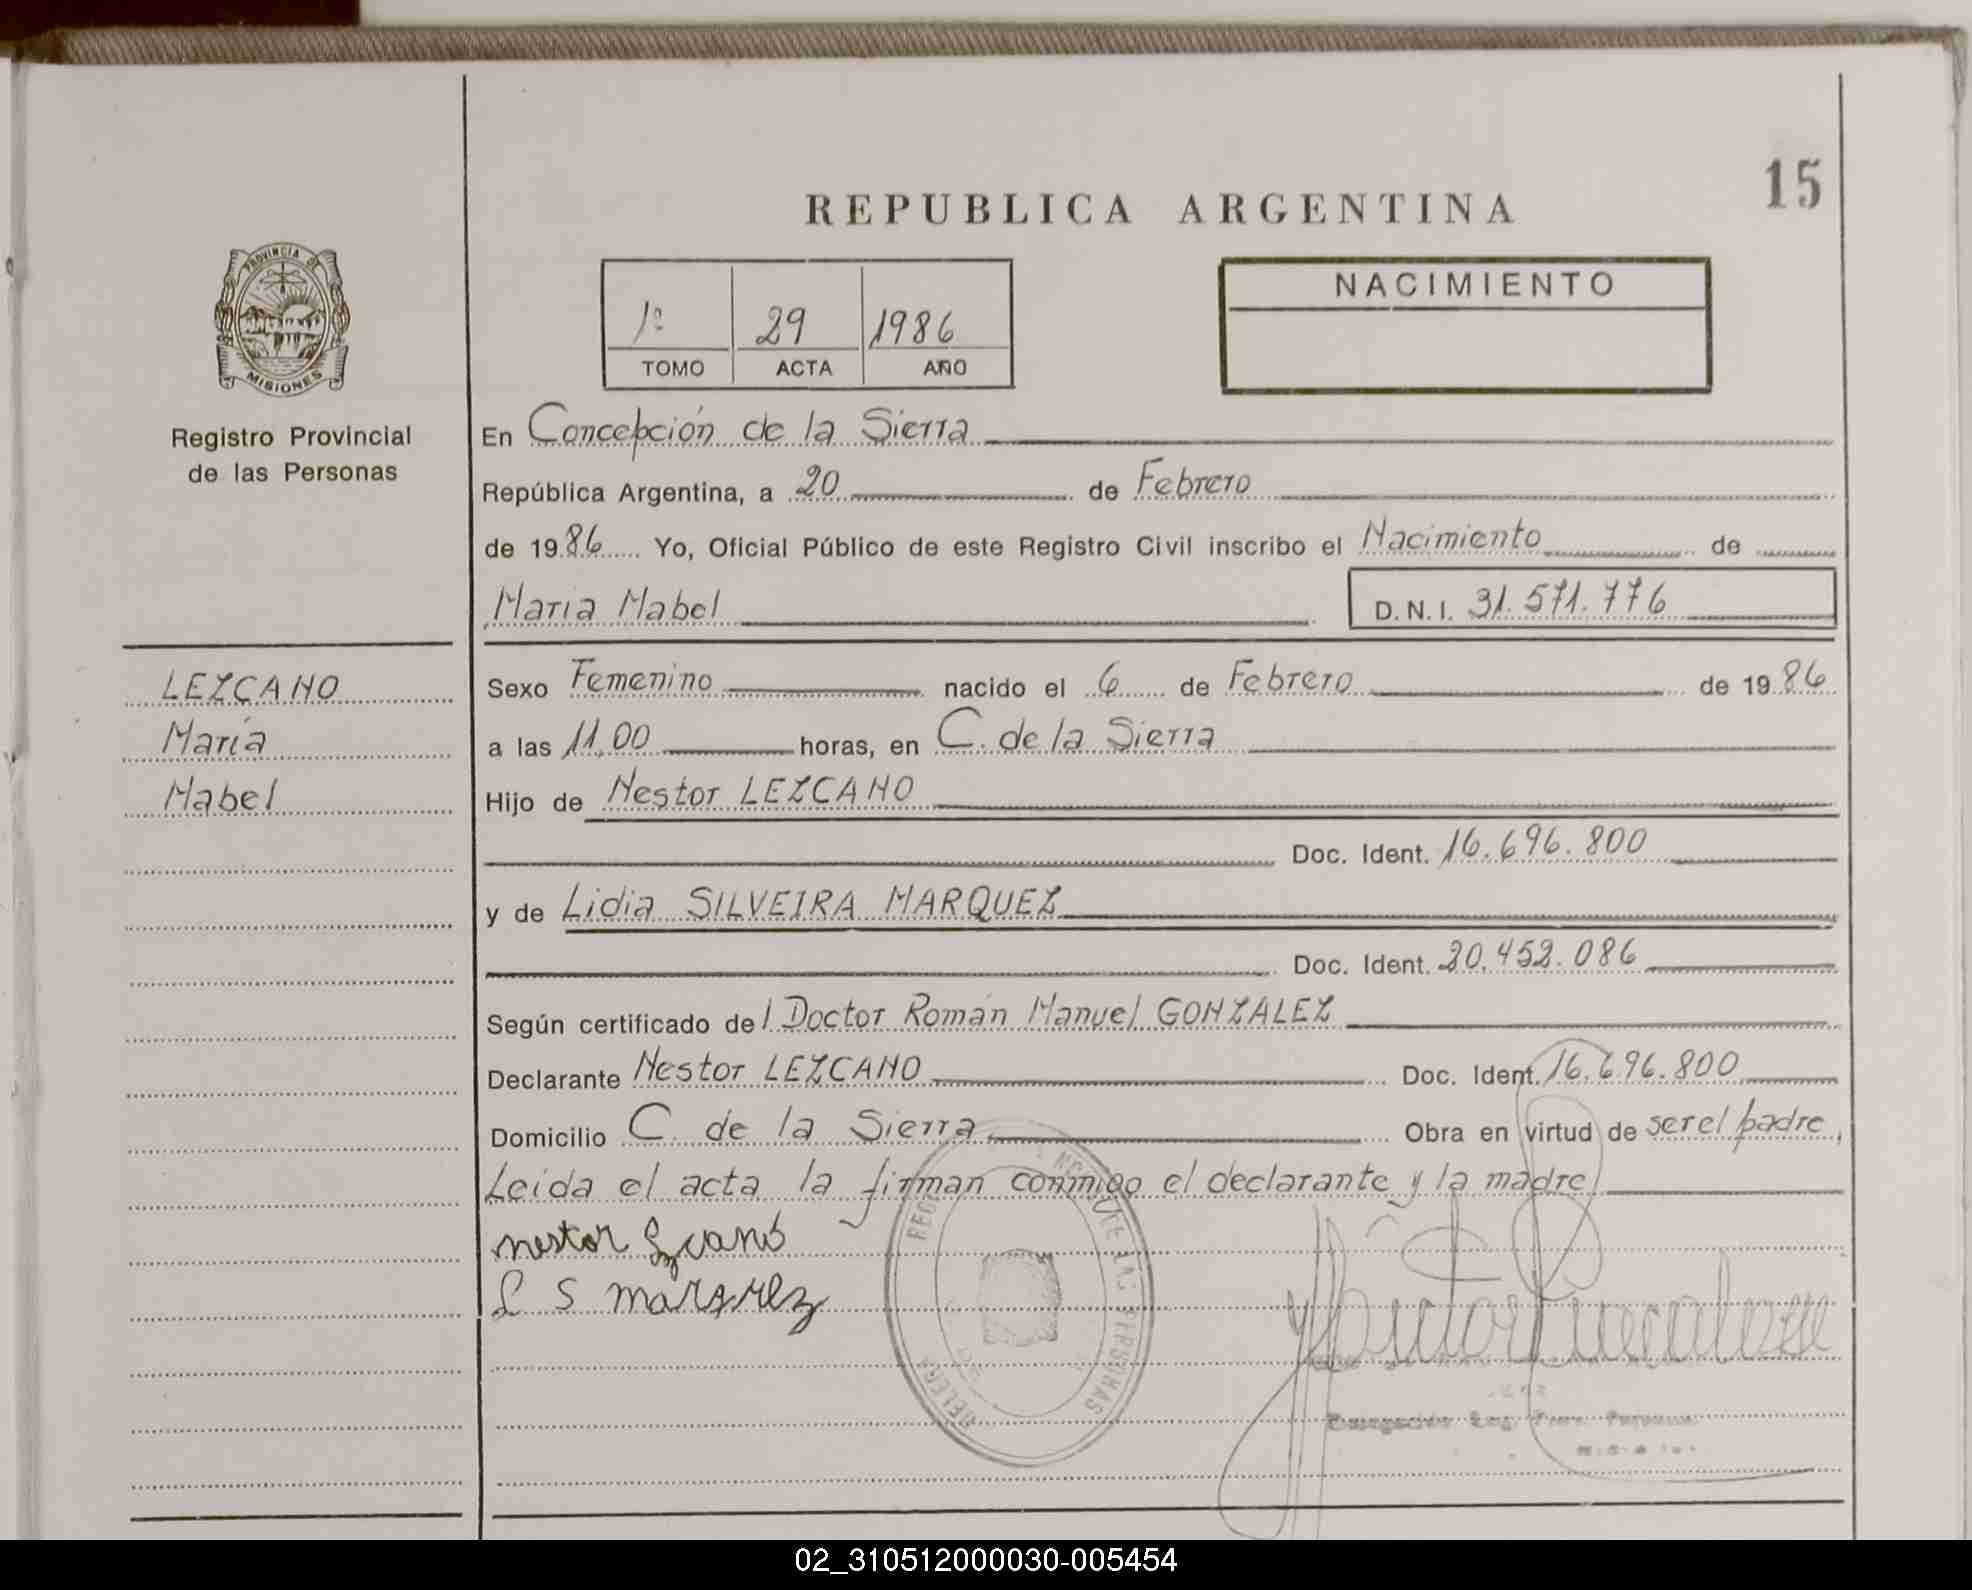 15
REPUBLICA ARGENTINA
PROVINCIA DE
MISIONES
Registro Provincial
de las Personas
1º 29 1986
TOMO ACTA AÑO
NACIMIENTO
En Concepción de la Sierra
República Argentina, a 20 de Febrero
de 1986 Yo, Oficial Público de este Registro Civil inscribo el Nacimiento de
Maria Mabel D.N.I. 31.571.776
LEZCANO
María
Mabel
Sexo Femenino nacido el 6 de Febrero de 1986
a las 11,00 horas, en C. de la Sierra
Hijo de Nestor LEZCANO
Doc. Ident. 16.696.800
y de Lidia SILVEIRA MARQUEZ
Doc. Ident. 20.452.086
Según certificado del Doctor Román Manuel GONZALEZ
Declarante Nestor LEZCANO Doc. Ident. 16.696.800
Domicilio C. de la Sierra Obra en virtud de ser el padre,
Leida el acta la firman conmigo el declarante y la madre
nestor Lezcano
L S marquez
PERSONAS
02_310512000030-005454